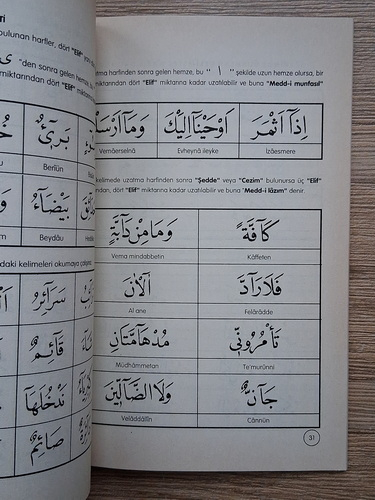 bulunan harfler, dört "Elif"
"den sonra gelen hemze,
miktarından dört "Elif" m
بَرِىٓءٌ
Beriün
بَيْضَٓاءُ
Beydâu
daki kelimeleri okumaya çalışınız
سَرَٓائِرُ
قَٓائِمٌ
نَدْخُلَهَٓا
صَٓائِمٌ
harfinden sonra gelen hemze, bu " ا " şekilde uzun hemze olursa, bir
miktarından dört "Elif" miktarına kadar uzatılabilir ve buna "Medd-i munfasıl"
اِذَٓا اَثْمَرَ اَوْحَيْنَٓا اِلَيْكَ وَمَٓا اَرْسَلْنَا
İzâesmere Evheynâ ileyke Vemâerselnâ
kelimede uzatma harfinden sonra "Şedde" veya "Cezim" bulunursa üç "Elif"
dört "Elif" miktarına kadar uzatılabilir ve buna "Medd-i lâzım" denir.
كَٓافَّةً وَمَا مِنْ دَٓابَّةٍ
Kâffeten Vema mindabbetin
فَلَا رَٓادَّ آَلْاٰنَ
Felârâdde Al ane
تَأْمُرُٓونّٖى مُدْهَٓامَّتَانِ
Te'murûnni Müdhâmmetan
جَٓانٌّ وَلَا الضَّٓالّٖينَ
Cânnün Velâddâllîn
31